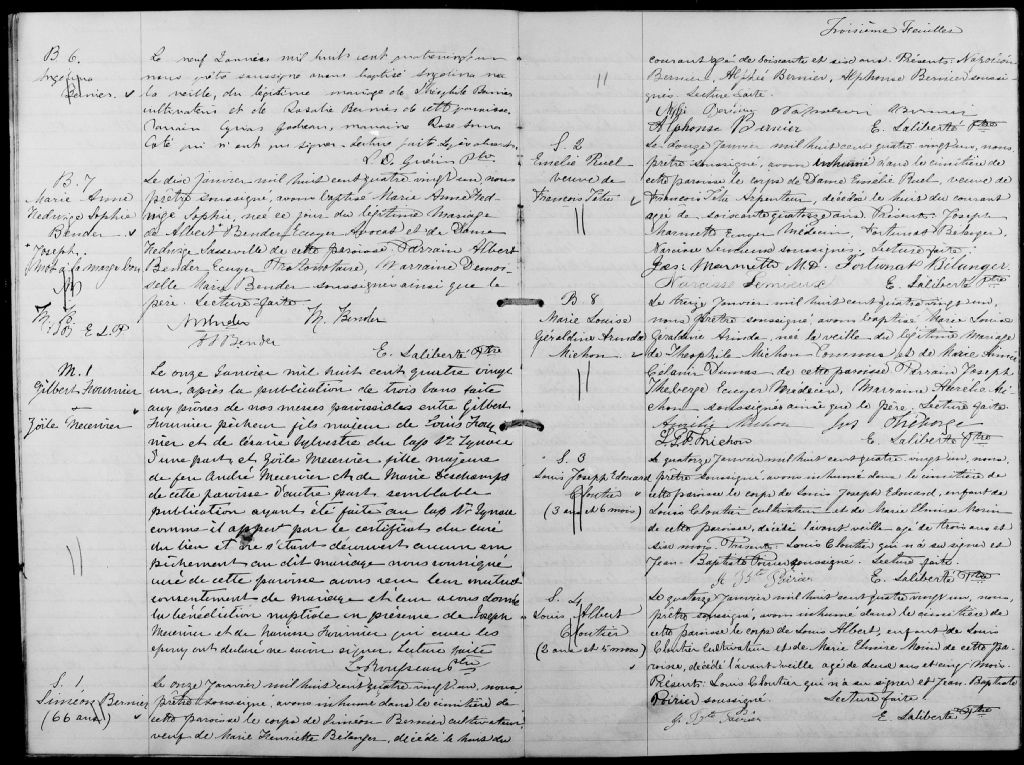 B 6.
Angelina
Bernier.
Le neuf Janvier mil huit cent quatrevingt un
nous prêtre soussigné avons baptisé Angelina née
la veille, du légitime mariage de Théophile Bernier
cultivateur et de Rosalie Bernier de cette paroisse.
Parrain Cyrias Godreau, marraine Rose Anna
Coté qui n'ont pu signer. Lecture faite
B. 7
Marie Anne
Hedwige Sophie
Bender
Joseph.
Le dix Janvier mil huit cent quatre vingt un, nous
prêtre soussigné, avons baptisé Marie Anne Hed
wige Sophie, née ce jour du légitime Mariage
de Albert Bender Ecuyer Avocat et de Dame
Hedwige de cette paroisse Parrain Albert
Bender, Ecuyer Protonotaire, Marraine Demoi-
selle Marie Bender soussignés ainsi que le
père. Lecture faite.
M. B
E L P
M. Bender
A Bender
E. Laliberté Ptre
M. 1
Gilbert Fournier
+
Zoïle Mercier
Le onze Janvier mil huit cent quatre vingt
un, après la publication de trois bans faite
aux prônes de nos messes paroissiales entre Gilbert
Fournier pêcheur fils majeur de Louis Four
nier et de Césarie Sylvestre du Cap St. Ignace
d'une part, et Zoïle Mercier fille majeure
de feu André Mercier et de Marie Deschamps
de cette paroisse d'autre part semblable
publication ayant été faite au Cap St. Ignace
comme il appert par le certificat du curé
du lieu et ne s'étant découvert aucun em
pêchement au dit mariage nous soussigné
curé de cette paroisse avons reçu leur mutuel
consentement de mariage et leur avons donné
la bénédiction nuptiale en présence de Joseph
Mercier et de Narcisse Fournier qui avec les
époux ont déclaré ne savoir signer. Lecture faite
L. Rousseau Ptre
S. 1
Siméon Bernier
(66 ans)
Le onze Janvier mil huit cent quatre vingt un, nous
prêtre soussigné, avons inhumé dans le cimetière de
cette paroisse le corps de Siméon Bernier cultivateur
veuf de Marie Henriette Bélanger, décédé le huit du
Troisième Feuillet
courant agé de soixante et six ans. Présents Napoléon
Bernier, Alfred Bernier, Alphonse Bernier soussi-
gnés Lecture faite.
Napoleon Bernier
Alphonse Bernier E. Laliberté Ptre
S. 2
Emélie Ruel
veuve de
François Têtu
Le douze Janvier mil huit cent quatre vingt un, nous,
prêtre soussigné, avons inhumé dans le cimetière de
cette paroisse le corps de Dame Emélie Ruel, veuve de
François Têtu Arpenteur, décédée le huit du courant
agée de soixante quatorze ans. Présents Joseph
Marmette Ecuyer Médecin, Fortunat Bélanger,
Narcisse Lemieux soussignés. Lecture faite.
Jos: Marmette M.D. Fortunat Bélanger
Narcisse Lemieux E. Laliberté Ptre
B 8
Marie Louise
Géraldine Arinda
Michon
Le treize Janvier mil huit cent quatre vingt un,
nous, prêtre soussigné, avons baptisé Marie Louise
Géraldine Arinda, née la veille du légitime Mariage
de Théophile Michon Commis et de Marie Aimée
Célanie Dumas de cette paroisse Parrain Joseph
Theberge Ecuyer Médecin, Marraine Aurélie Mi-
chon soussignés ainsi que le père. Lecture faite.
Aurélie Michon Jos Théberge
Michon E. Laliberté Ptre
S. 3
Louis Joseph Edouard
Cloutier
(3 ans et 6 mois)
Le quatorze Janvier mil huit cent quatre vingt un, nous,
prêtre soussigné, avons inhumé dans le cimetière de
cette paroisse le corps de Louis Joseph Edouard, enfant de
Louis Cloutier cultivateur et de Marie Elmire Morin
de cette paroisse, décédé l'avant veille agé de trois ans et
six mois. Présents: Louis Cloutier qui n'a su signer et
Jean Baptiste Poirier soussigné. Lecture faite.
J Bte Poirier E. Laliberté Ptre
S. 4
Louis Albert
Cloutier
(2 ans et 5 mois)
Le quatorze Janvier mil huit cent quatre vingt un, nous,
prêtre soussigné, avons inhumé dans le cimetière de
cette paroisse le corps de Louis Albert, enfant de Louis
Cloutier Cultivateur et de Marie Elmire Morin de cette pa-
roisse, décédé l'avant veille agé de deux ans et cinq mois.
Présents: Louis Cloutier qui n'a su signer et Jean Baptiste
Poirier soussigné. Lecture faite
J. Bte Poirier E Laliberté Ptre